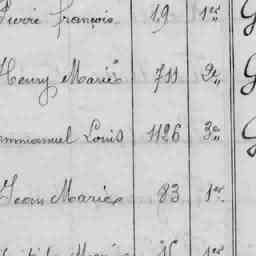 Pierre François 19 1er
Henry Marie 711 2e
Emmanuel Louis 1126 3e
Jean Marie 83 1er